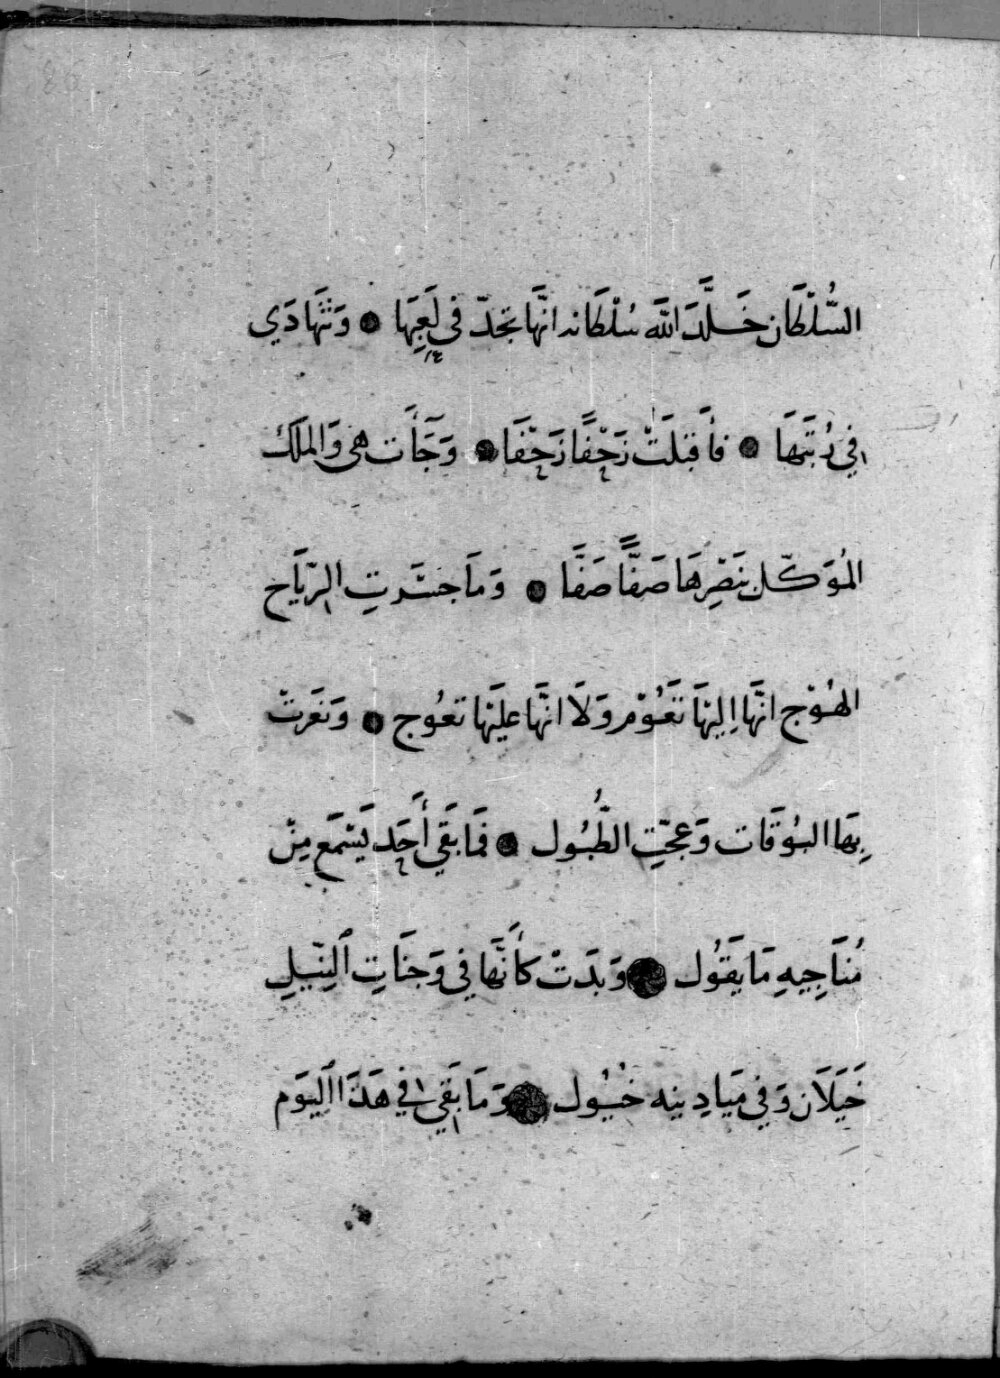 السُّلْطَان خَلَّدَ اللَّه سُلْطَانه انَّهَا تجدّ فى لَعِبِهَا ● وَتَتَهَادَي
في رُتَبِهَا ● فأَقبَلَتْ زَحْفًا زَحْفَا ● وَجَآَت هى وَالملَك
المُوَكّل بنَصْرِهَا صَفًّا صَفَّا ● وَمَا جسَرتِ الرّيَاح
الهُوْج انَّهَا اِليهَا تَقُوْم وَلَا انَّهَا عليَهَا تعُوج ● وَنَعَرتْ
بِهَا البُوقَات وَعجّتِ الطُّبُول ● فمَا بَقَي أَحَد يَسْمَع مِنْ
مُنَاجِيهِ مَا يَقُول ● وَبَدَتْ كأَنَّهَا في وَجنَاتِ النِّيلِ
خَيَلَان وَفي مَيَادِينه خُيُول ● وَمَا بَقي في هَذَا اليَوَم